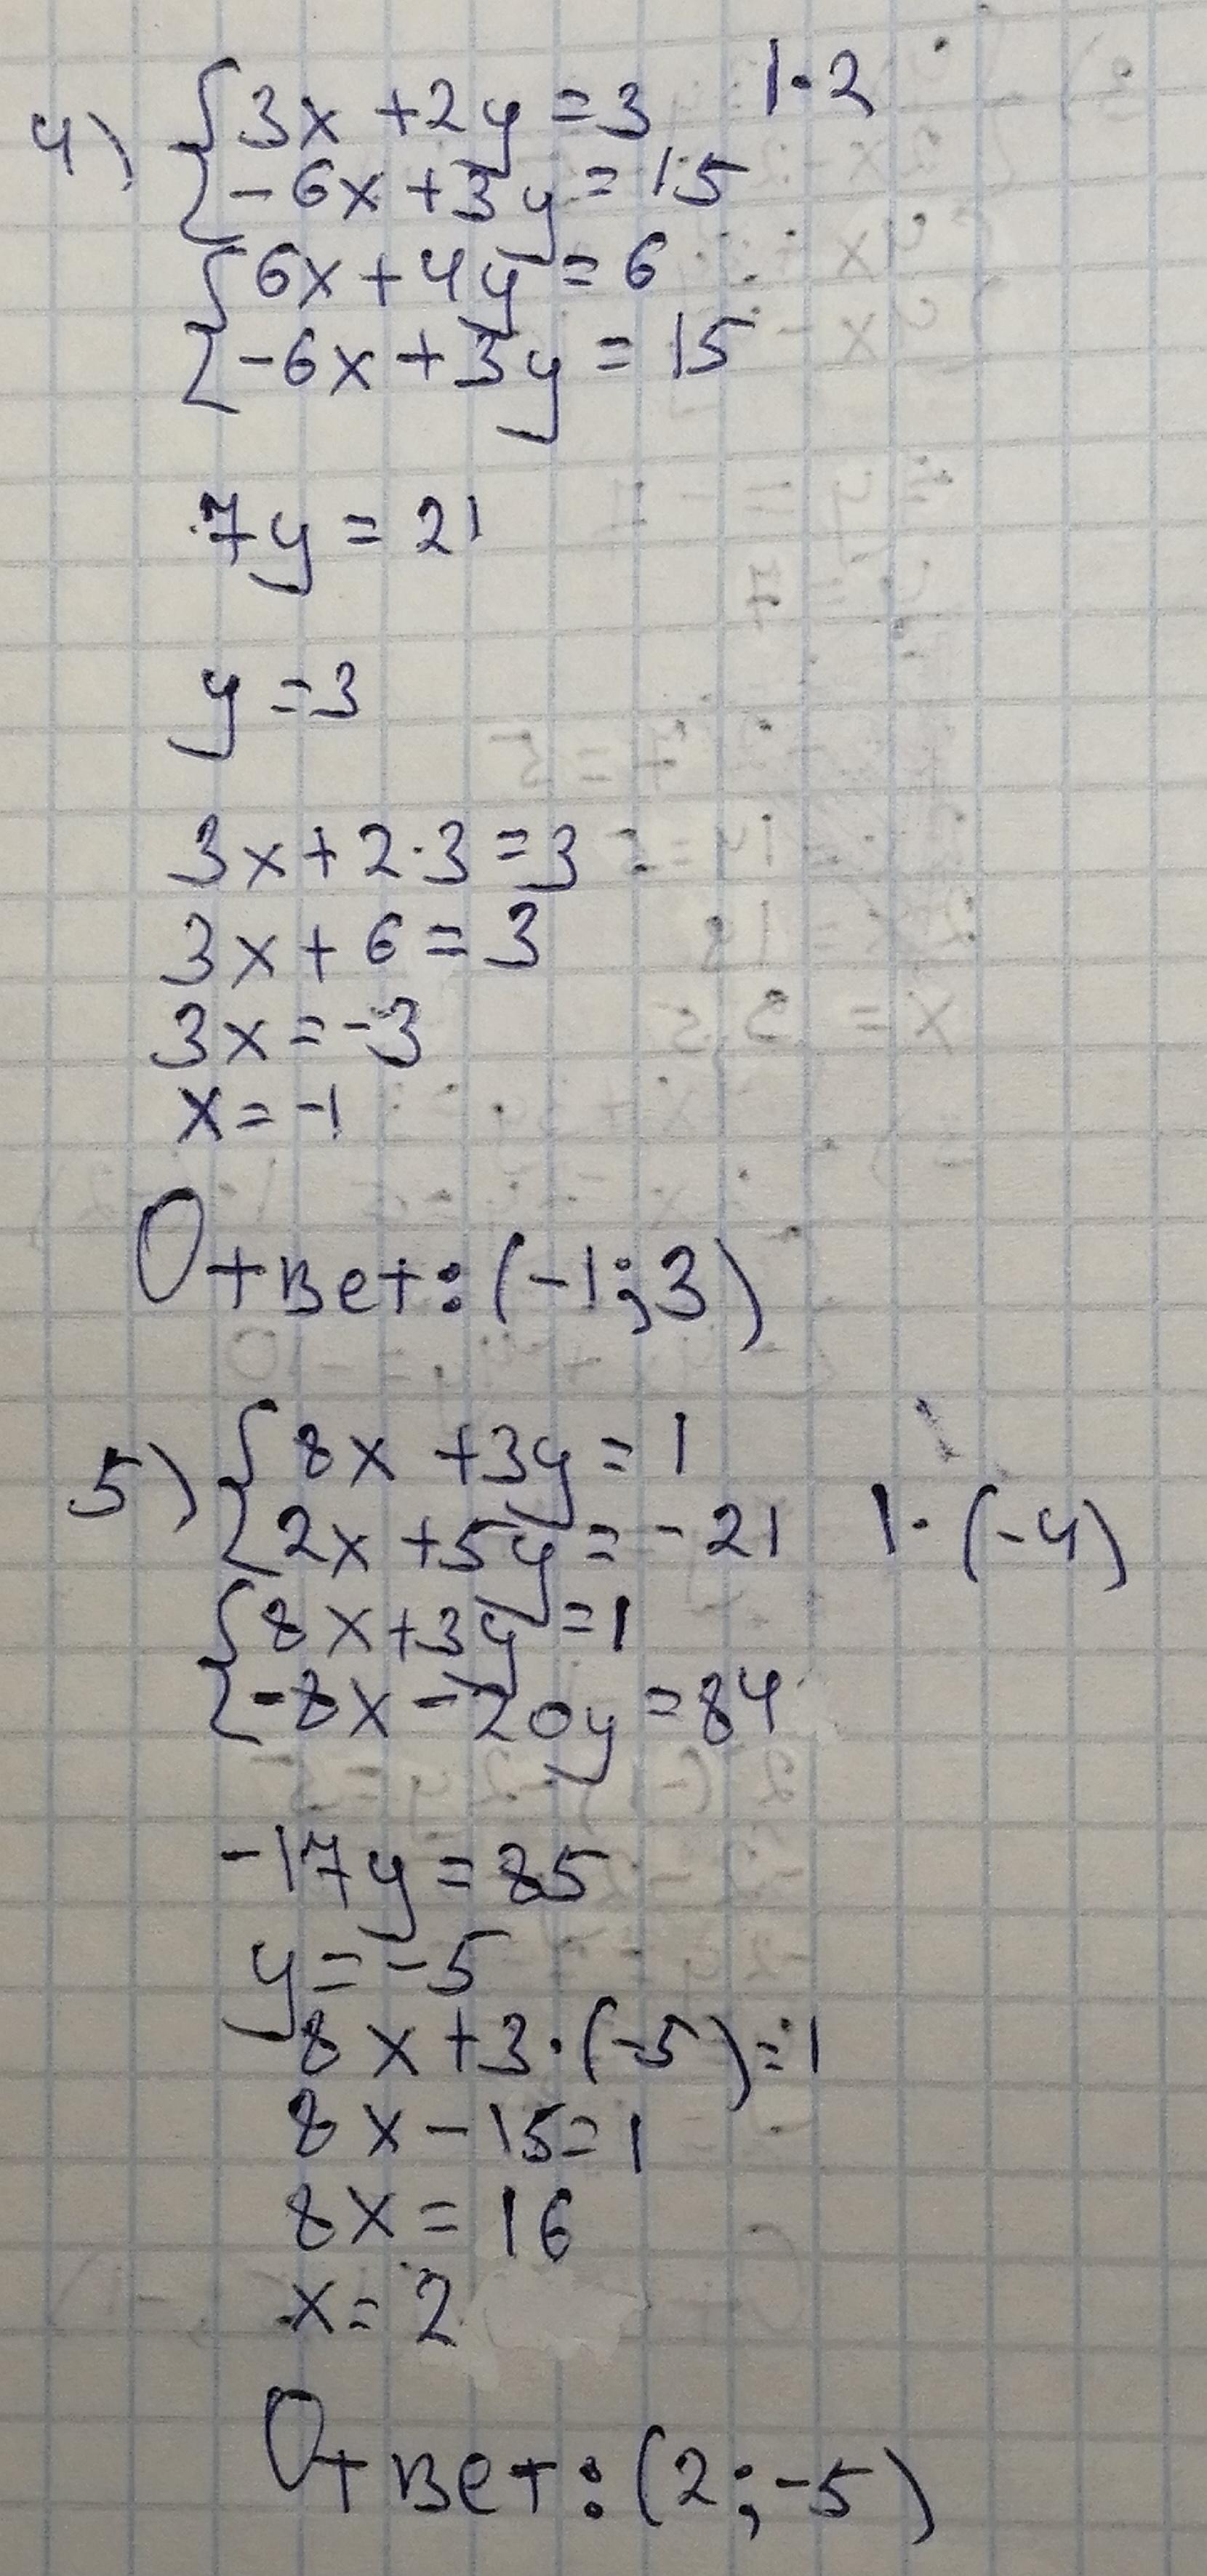 4) { 3x + 2y = 3 | · 2
{ -6x + 3y = 15
{ 6x + 4y = 6
{ -6x + 3y = 15
7y = 21
y = 3
3x + 2·3 = 3
3x + 6 = 3
3x = -3
x = -1
Ответ: (-1; 3)
5) { 8x + 3y = 1
{ 2x + 5y = -21 | · (-4)
{ 8x + 3y = 1
{ -8x - 20y = 84
-17y = 85
y = -5
8x + 3·(-5) = 1
8x - 15 = 1
8x = 16
x = 2
Ответ: (2; -5)